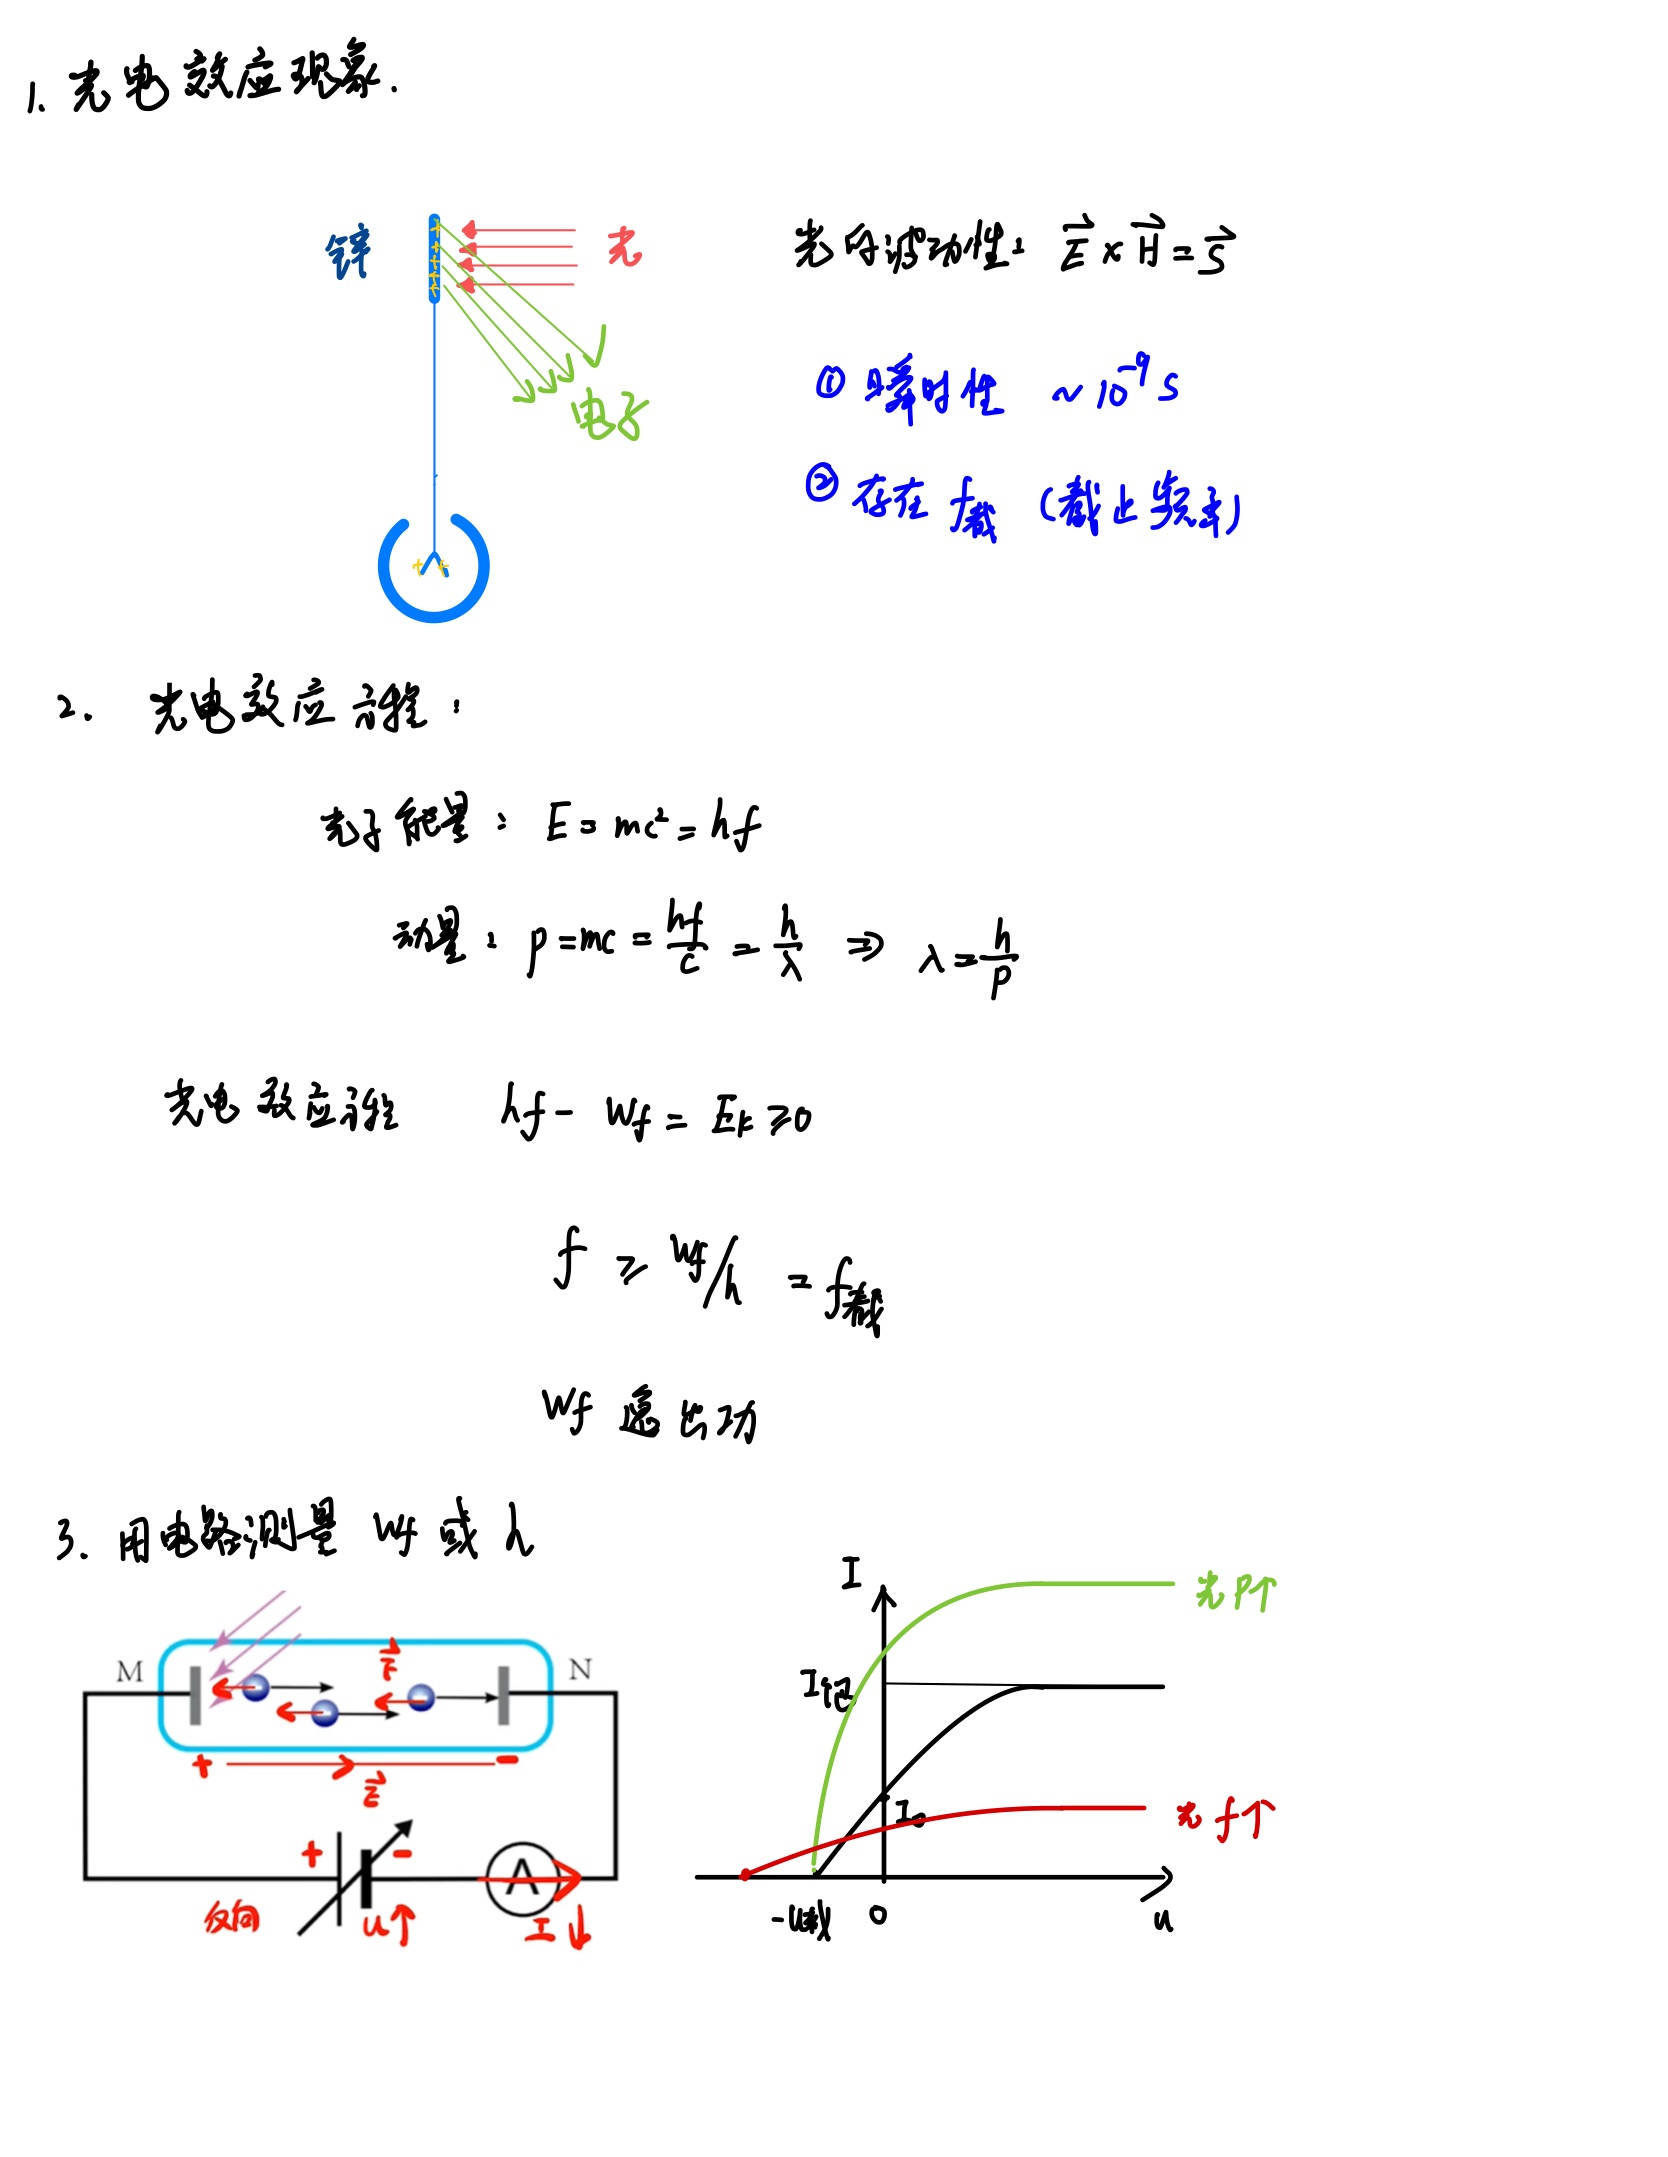 1. 光电效应现象.
锌
光
电子
光的波动性: E⃗ × H⃗ = S⃗
① 瞬时性 ~10⁻⁹ s
② 存在 f截 (截止频率)
2. 光电效应方程:
光子能量: E = mc² = hf
动量: p = mc = hf/c = h/λ ⇒ λ = h/p
光电效应方程 hf - Wf = Ek ≥ 0
f ≥ Wf/h = f截
Wf 逸出功
3. 用电路测量 Wf 或 h
M
F⃗
N
+ -
E⃗
+ -
A
反向
u↑
I↓
I
光 P↑
I饱
I₀
光 f↑
-u截
0
u